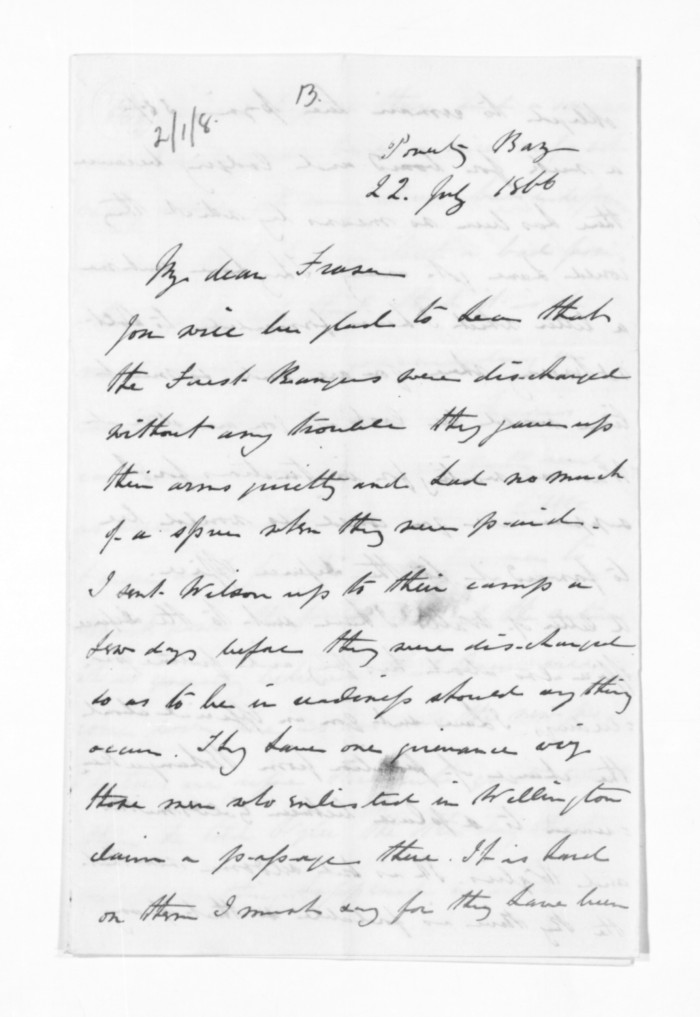 B.
2/1/8.
Poverty Bay
22. July 1866
My dear Fraser
You will be glad to hear that
the Forest Rangers were discharged
without any trouble they gave up
their arms quietly and had no much
of a spree when they were paid.
I sent Wilson up to their camp a
few days before they were discharged
so as to be in readiness should anything
occur. They have one grievance viz
those men who enlisted in Wellington
claim a passage there. It is hard
on them I must say for they have been